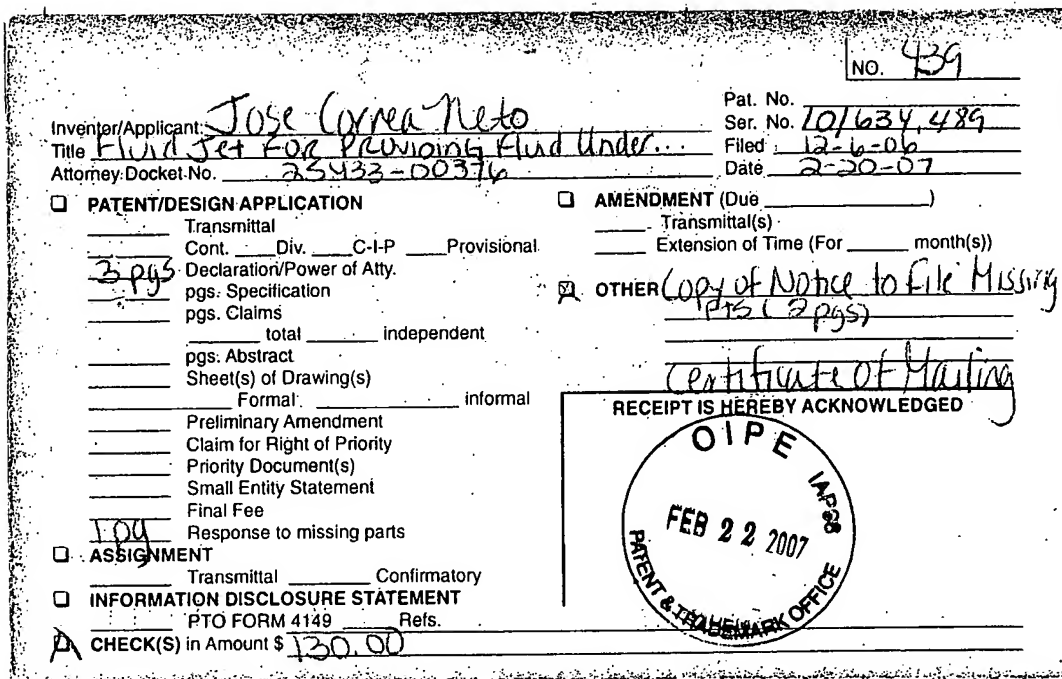 NO. 439
Inventor/Applicant: Jose Correa Neto
Pat. No.
Title Fluid Jet FOR PROVIDING Fluid Under...
Ser. No. 10/634,489
Attorney Docket No. 25433-00376
Filed: 12-6-06
Date 2-20-07
PATENT/DESIGN APPLICATION
Transmittal
Cont. Div. C-I-P Provisional
3 pgs Declaration/Power of Atty.
pgs. Specification
pgs. Claims
total independent
pgs. Abstract
Sheet(s) of Drawing(s)
Formal informal
Preliminary Amendment
Claim for Right of Priority
Priority Document(s)
Small Entity Statement
Final Fee
1 pg Response to missing parts
ASSIGNMENT
Transmittal Confirmatory
INFORMATION DISCLOSURE STATEMENT
PTO FORM 4149 Refs.
CHECK(S) in Amount $ 130.00
AMENDMENT (Due )
Transmittal(s)
Extension of Time (For month(s))
OTHER Copy of Notice to File Missing
Pts (2 pgs)
Certificate Of Mailing
RECEIPT IS HEREBY ACKNOWLEDGED
OIPE
FEB 22 2007
PATENT & TRADEMARK OFFICE